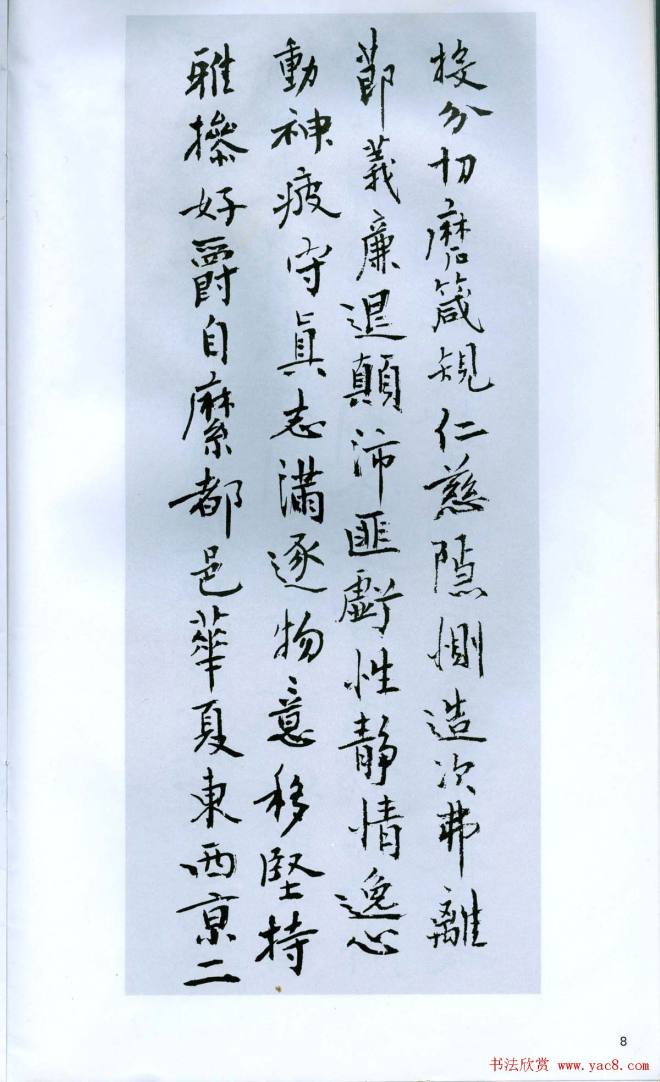 投分切磨箴規仁慈隱惻造次弗離
節義廉退顛沛匪虧性靜情逸心
動神疲守真志滿逐物意移堅持
雅操好爵自縻都邑華夏東西京二
8
书法欣赏 www.yac8.com